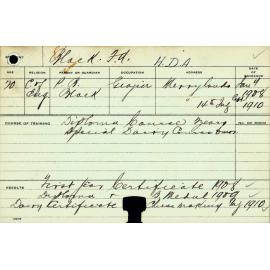 Black. F.A. H.D.A
AGE RELIGION PARENT OR GUARDIAN OCCUPATION ADDRESS
20 C of Eng P. B. Black Grazier Merrylands Jan 9 1908
14th July 1910
COURSE OF TRAINING Diploma Course
Special Dairy Course
RESULTS First Year Certificate 1908
Diploma & B. Medal 1909
Dairy Certificate Cheese Making July 1910